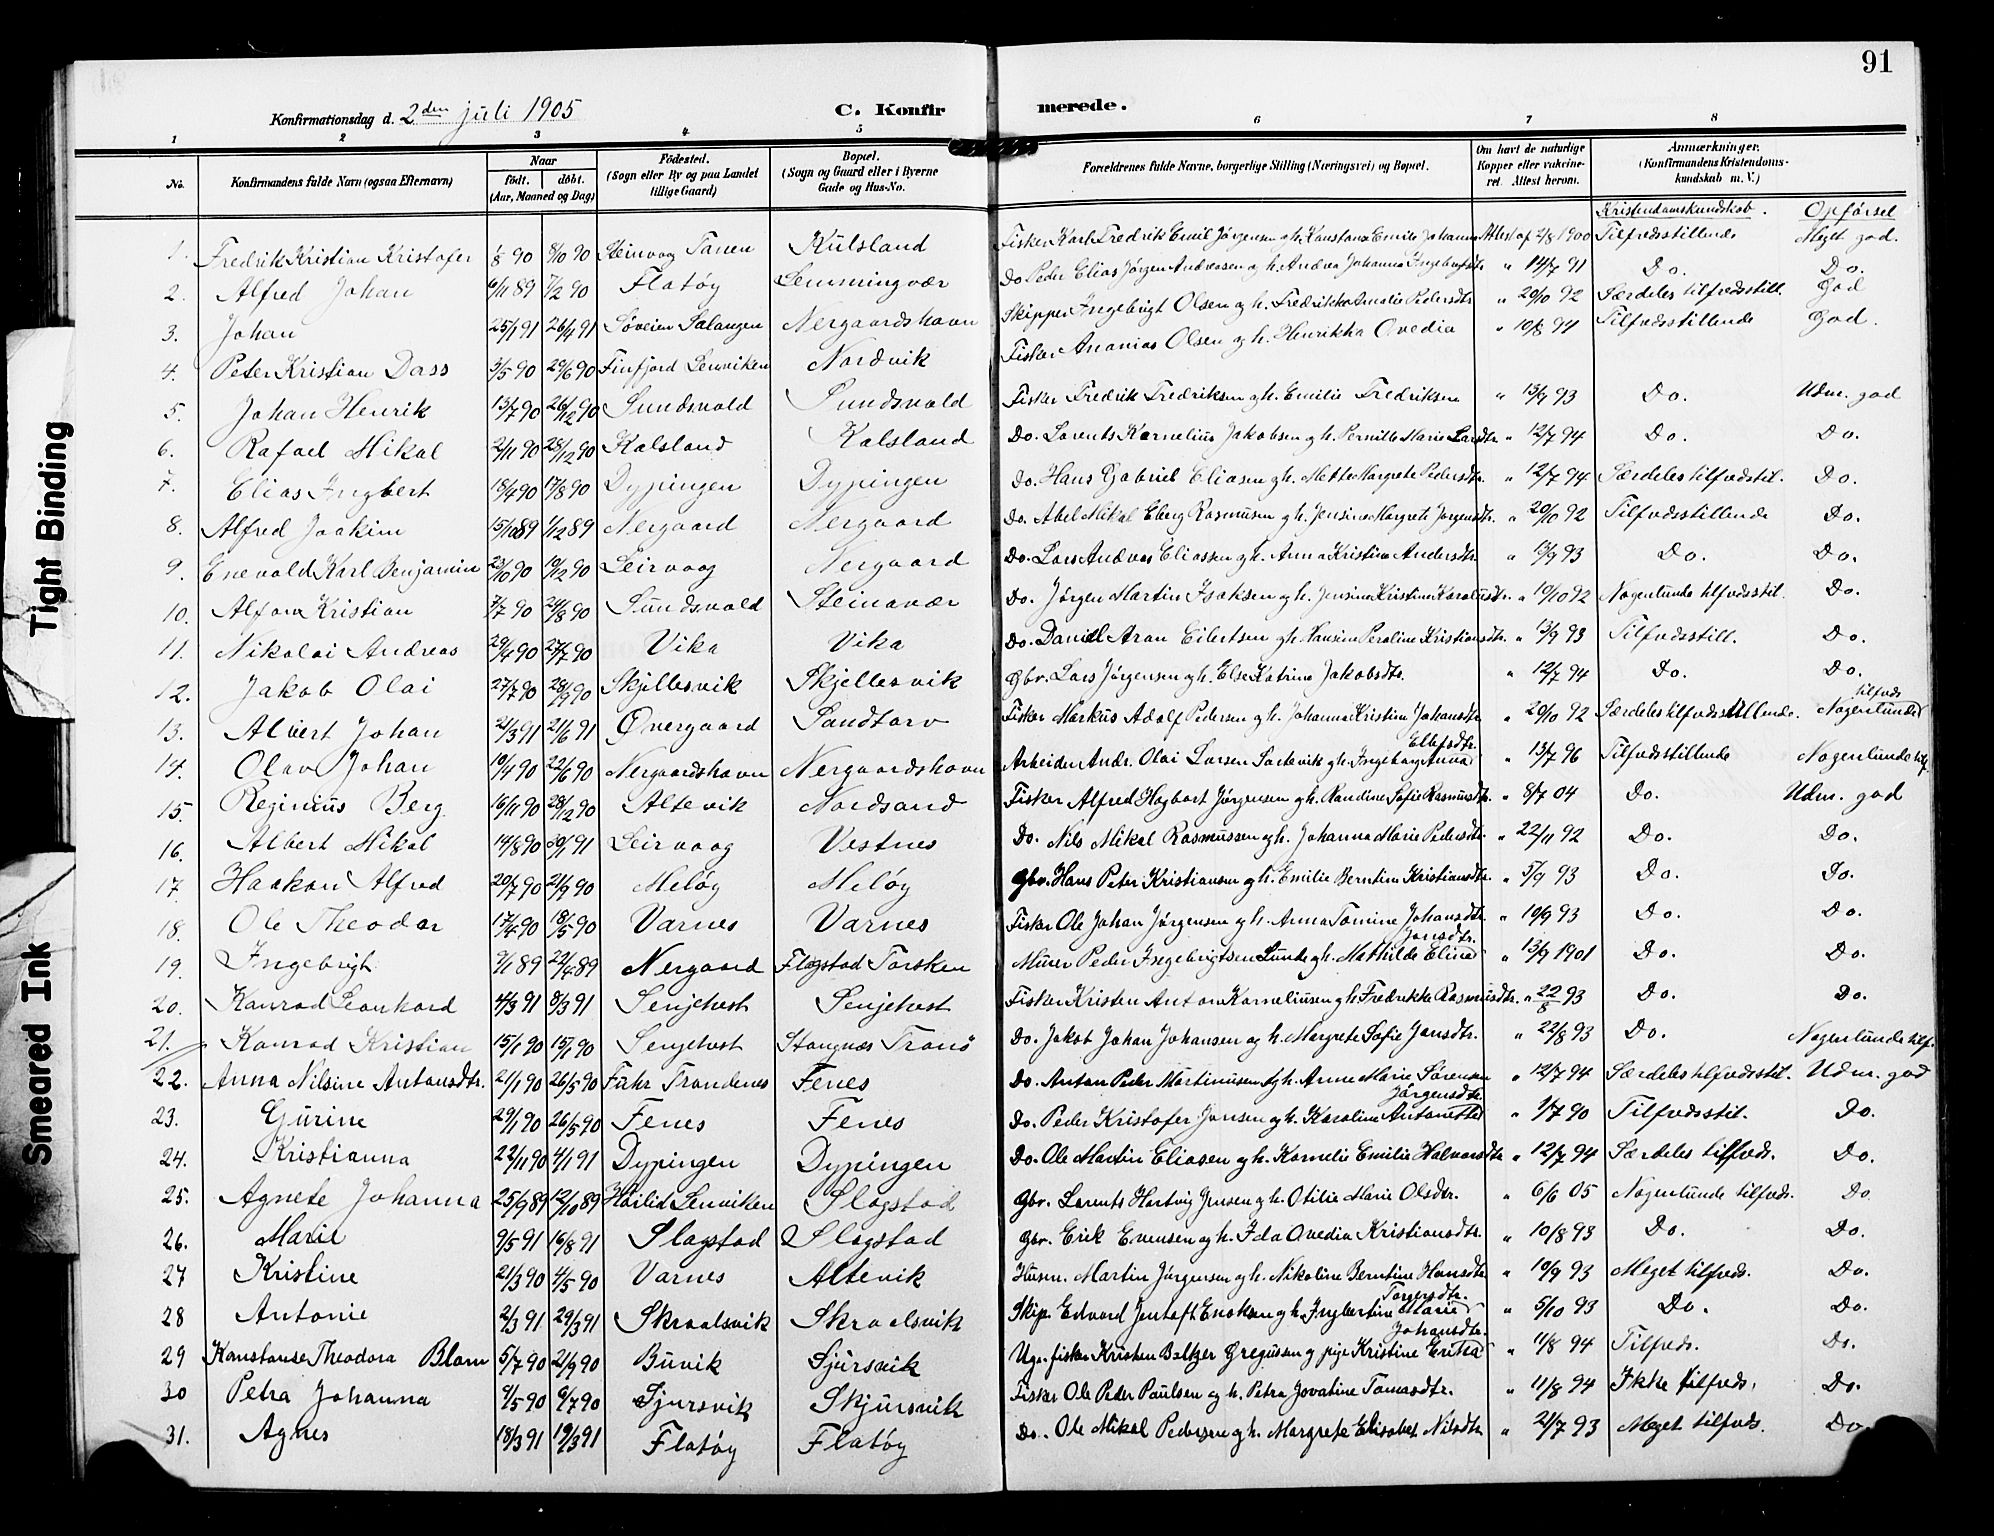 91
Konfirmationsdag d. 2den juli 1905 C. Konfir merede.
1 2 3 4 5 6 7 8
No. Konfirmandens fulde Navn (ogsaa Efternavn) Naar født. døbt. (Aar, Maaned og Dag) Fødested. (Sogn eller By og paa Landet tillige Gaard) Bopæl. (Sogn og Gaard eller i Byerne Gade og Hus-No.) Forældrenes fulde Navne, borgerlige Stilling (Næringsvei) og Bopæl. Om havt de naturlige Kopper eller vakcineret. Attest herom. Anmærkninger. (Konfirmandens Kristendomskundskab m. V.)
Kristendomskundskab. Opførsel
1. Fredrik Kristian Kristofer 1/8 90 8/10 90 Steinvaag Tanen Kulsland Fisker Karl Fredrik Emil Jørgensen og h. Konstanse Emilie Johanna Attest af 2/8 1900 Tilfredsstillende Meget god.
2. Alfred Johan 6/11 89 7/2 90 Flatøy Lemmingvær Do Peder Elias Jørgen Andreasen og h. Andrea Johanna Ingebrigtsdtr " 14/7 91 Do. Do.
3. Johan 25/1 91 26/4 91 Søveien Salangen Nergaardshavn Skipper Ingebrigt Olsen og h. Fredrikke Amalie Pedersdtr " 20/10 92 Særdeles tilfredsstill. God
4. Peter Kristian Dass 3/5 90 29/6 90 Finfjord Lenviken Nordvik Fisker Ananias Olsen og h. Henrikka Ovedia " 10/8 91 Tilfredsstillende God.
5. Johan Henrik 13/7 90 26/12 90 Sundsvold Sundsvold Fisker Fredrik Fredriksen og h. Emilie Fredriksen " 13/9 93 Do. Udm. god
6. Rafael Mikal 2/11 90 28/12 90 Kalsland Kalsland Do. Lorents Kornelius Jakobsen og h. Pernille Marie Larsdtr. " 12/7 94 Do. Do.
7. Elias Ingbert 18/4 90 17/8 90 Dypingen Dypingen Do. Hans Gabriel Eliasen og h. Mette Margrete Pedersdtr. " 12/7 94 Særdeles tilfredsstil. Do.
8. Alfred Joakim 15/10 89 1/12 89 Nergaard Nergaard Do. Abel Mikal Eberg Rasmusen og h. Jensine Margrete Jørgensdtr. " 20/10 92 Tilfredsstillende Do.
9. Enevald Karl Benjamin 23/10 90 19/12 90 Leirvaag Nergaard Do. Lars Andreas Eliassen og h. Anna Kristine Andersdtr. " 13/9 93 Do. Do.
10. Alfon Kristian 7/7 90 24/8 90 Sundsvold Steinavær Do. Jørgen Martin Isaksen og h. Jensine Kristine Karolusdtr. " 19/10 92 Nogenlunde tilfredsstil. Do.
11. Nikolai Andreas 29/4 90 27/7 90 Vika Vika Do. Daniel Aron Eilertsen og h. Hansine Peroline Kristiansdtr. " 13/9 93 Tilfredsstill. Do.
12. Jakob Olai 27/7 90 28/9 90 Skjellesvik Skjellesvik Gbr. Lars Jørgensen og h. Else Katrine Jakobsdtr. " 12/7 94 Do. Do.
13. Alvert Johan 2/3 91 21/6 91 Øvergaard Sandtorv Fisker Markus Adolf Pedersen og h. Johanna Kristine Johansdtr " 20/10 92 Særdeles tilfredsstillende. Nogenlunde tilfreds
14. Olav Johan 10/4 90 22/6 90 Nergaardshavn Nergaardshavn Arbeider Andr. Olai Larsen Sætevik og h. Ingeborg Anna Ellefsdtr. " 13/7 96 Tilfredsstillende Nogenlunde tilf.
15. Reginius Berg 16/11 90 28/12 90 Altevik Nordsand Fisker Alfred Hagbart Jørgensen og h. Nandine Sofie Rasmusdtr. " 8/7 04 Do. Udm. god
16. Albert Mikal 14/8 90 30/1 91 Leirvaag Vestnes Do. Nils Mikal Rasmussen og h. Johanna Marie Pedersdtr. " 22/11 92 Do. Do.
17. Haakon Alfred 20/7 90 21/9 90 Meløy Meløy Gbr. Hans Peter Kristiansen og h. Emilie Berntine Kristiansdtr. " 5/9 93 Do. Do.
18. Ole Theodor 17/4 90 18/5 90 Varnes Varnes Fisker Ole Johan Jørgensen og h. Anna Tomine Johansdtr. " 19/9 93 Do. Do.
19. Ingebrigt 9/1 89 22/4 89 Nergaard Flagstad Torsken Murer Peder Ingebrigtsen Lunde og h. Mathilde Elina Jonsdtr. " 13/9 1901 Do. Do.
20. Konrad Leonhard 4/3 91 8/3 91 Senjehest Senjehest Fisker Kristen Anton Korneliusen og h. Fredrikke Rasmusdtr. " 22/8 93 Do. Do.
21. Konrad Kristian 15/1 90 15/1 90 Senjehest Stangnes Tranø Do. Jakob Johan Johansen og h. Margrete Sofie Jonsdtr. " 22/8 93 Do. Nogenlunde tilf.
22. Anna Nilsine Antonsdtr. 21/1 90 26/5 90 Fuhr Trondenes Fenes Do. Anton Peder Martinusen og h. Anne Marie Sørensen " 12/7 94 Særdeles tilfredsstil. Udm. god
23. Gurine 29/1 90 26/5 90 Fenes Fenes Do. Peder Kristofer Jensen og h. Karoline Antonette Jørgensdtr. " 1/7 90 Tilfredsstil. Do.
24. Kristianna 22/11 90 4/1 91 Dypingen Dypingen Do. Ole Martin Eliasen og h. Kornelie Emilie Halvorsdtr " 12/7 94 Særdeles tilfreds. Do.
25. Agnete Johanna 25/9 89 12/10 89 Havlid Lenviken Slagstad Gbr. Lorents Hartvig Jensen og h. Otilie Marie Olsdtr. " 6/6 05 Nogenlunde tilfreds. Do
26. Marie 9/5 91 16/8 91 Slagstad Slagstad Gbr. Erik Evensen og h. Ida Ovedia Kristiansdtr. " 10/8 93 Do. Do.
27 Kristine 21/3 90 4/5 90 Varnes Altevik Husm. Martin Jørgensen og h. Nikoline Berntine Hansdtr " 19/9 93 Meget tilfreds. Do.
28 Antonie 2/3 91 29/3 91 Skraalsvik Skraalsvik Skip. Edvard Jentoft Enoksen og h. Ingbertine Marie Torgersdtr. " 5/10 93 Do. Do.
29 Konstanse Theodora Blom 5/7 90 21/9 90 Buvik Sjursvik Ugr. fisker Kristen Baltzer Gregusen og pige Kristine Erika Johansdtr. " 11/8 94 Tilfreds. Do.
30 Petra Johanna 9/5 90 6/7 90 Sjursvik Skjursvik Fisker Ole Peter Paulsen og h. Petra Jovatine Tomasdtr. " 11/8 94 Ikke tilfreds. Do.
31. Agnes 18/3 91 19/3 91 Flatøy Flatøy Do. Ole Mikal Pedersen og h. Margrete Elisabet Nilsdtr. " 21/7 93 Meget tilfreds. Do.
Tight Binding
Smeared Ink